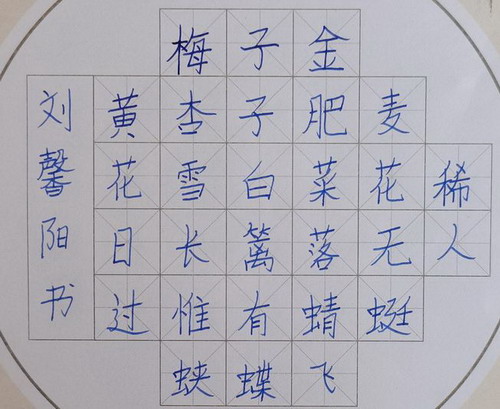 梅子金
黄杏子肥麦
花雪白菜花稀
日长篱落无人
过惟有蜻蜓
蛱蝶飞
刘馨阳书